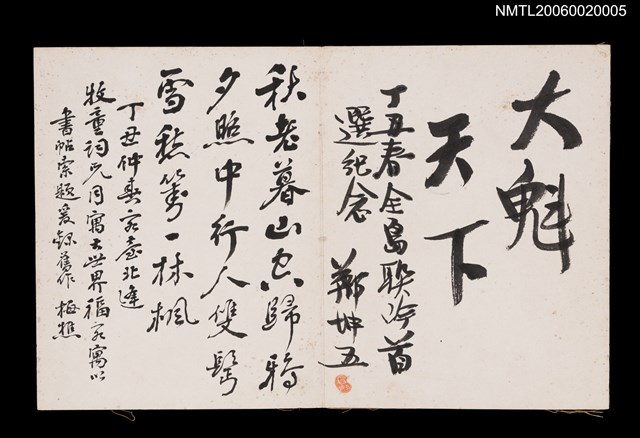 NMTL20060020005
大魁
天下
丁丑春全島聯吟首
選紀念 鄭坤五
秋老暮山空歸鴉
夕照中行人雙鬢
雪愁煞一林楓
丁丑仲春客臺北逢
牧童詞兄同寓大世界福客寓以
書帖索題爰錄舊作 梅樵